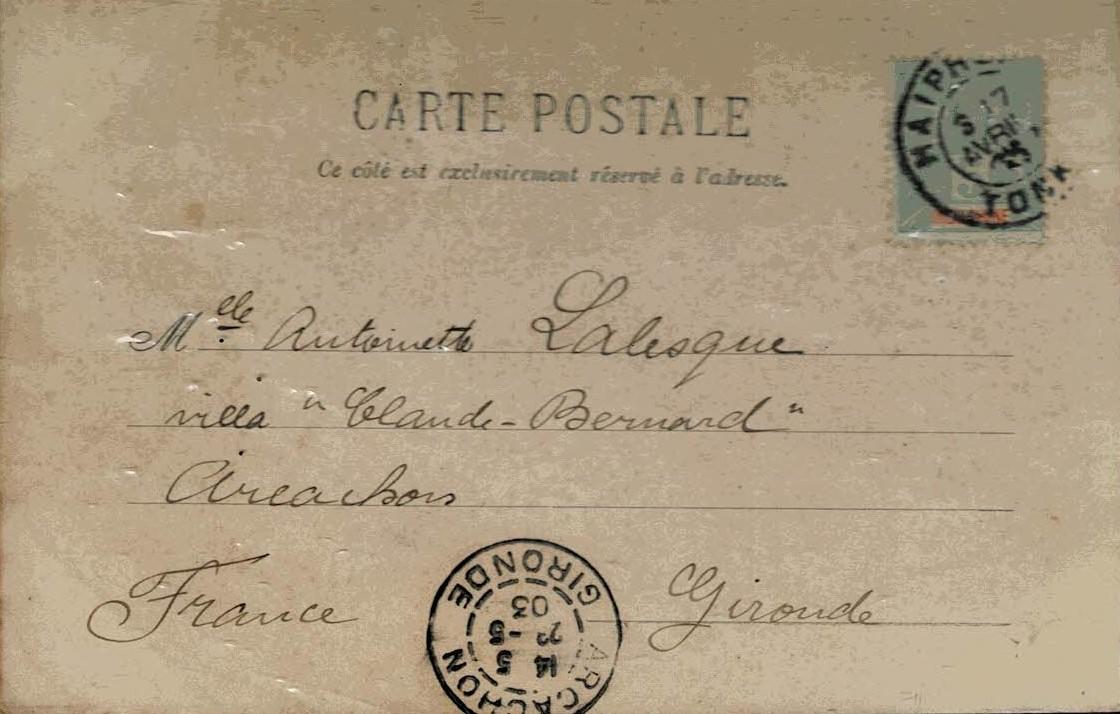 CARTE POSTALE
Ce côté est exclusivement réservé à l'adresse.
HAIPHONG
17
AVRIL
03
TONKIN
Melle Antoinette Lalesque
villa "Claude-Bernard"
Arcachon
France Gironde
ARCACHON
14 5
03
GIRONDE